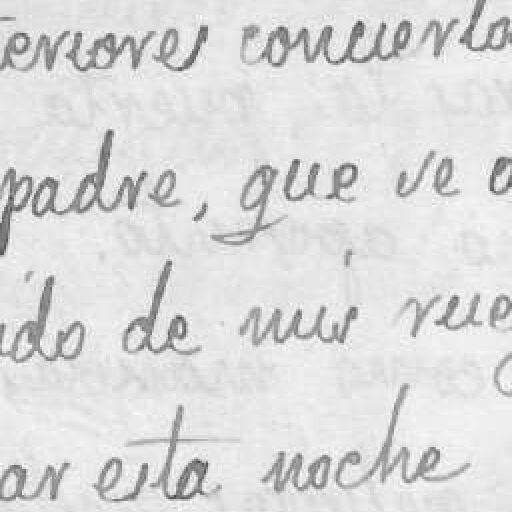 teriores concierto
padre, que ve a
ido de mis rue
ar esta noche